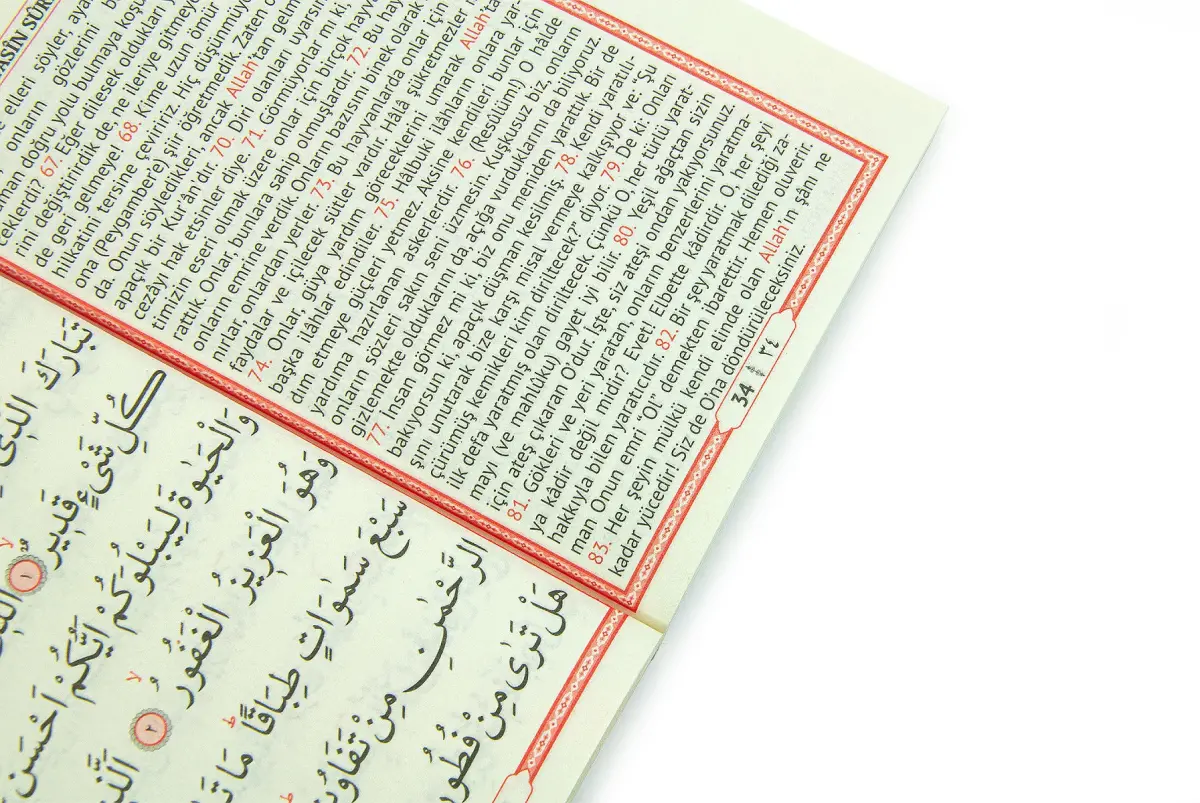 ASÎN SÛR
e elleri söyler, aya
onların gözlerini b
man doğru yolu bulmaya koşu
eklerdi? 67. Eğer dilesek oldukları y
rini değiştirirdik de, ne ileriye gitmeye
de geri gelmeye! 68. Kime uzun ömür
hilkatini tersine çeviririz. Hiç düşünmüyo
ona (Peygambere) şiir öğretmedik. Zaten o
da. Onun söyledikleri, ancak Allah'tan gelm
apaçık bir Kur'ân'dır. 70. Diri olanları uyarsın
cezâyı hak etsinler diye. 71. Görmüyorlar mı ki,
timizin eseri olmak üzere onlar için birçok hayv
rattık. Onlar, bunlara sahip olmuşlardır. 72. Bu hay
onların emrine verdik. Onların bazısını binek olarak
nırlar, onlardan yerler. 73. Bu hayvanlarda onlar için
faydalar ve içilecek sütler vardır. Hâlâ şükretmezler
74. Onlar, güya yardım göreceklerini umarak Allah'ta
başka ilâhlar edindiler. 75. Hâlbuki ilâhların onlara yar-
dım etmeye güçleri yetmez. Aksine kendileri bunlar için
yardıma hazırlanan askerlerdir. 76. (Resûlüm) O hâlde
onların sözleri sakın seni üzmesin. Kuşkusuz biz, onların
gizlemekte olduklarını da açığa vurduklarını da biliyoruz.
77. İnsan görmez mi ki, biz onu meniden yarattık. Bir de
bakıyorsun ki, apaçık düşman kesilmiş. 78. Kendi yaratılı-
şını unutarak bize karşı misal vermeye kalkışıyor ve: “Şu
çürümüş kemikleri kim diriltecek?” diyor. 79 De ki: Onları
ilk defa yaratmış olan diriltecek. Çünkü O, her türlü yarat-
mayı (ve mahlûku) gayet iyi bilir. 80. Yeşil ağaçtan sizin
için ateş çıkaran O'dur. İşte, siz ateşi ondan yakıyorsunuz.
81. Gökleri ve yeri yaratan, onların benzerlerini yaratma-
ya kâdir değil midir? Evet! Elbette kâdirdir. O, her şeyi
hakkıyla bilen yaratıcıdır. 82. Bir şey yaratmak dilediği za-
man Onun emri “Ol” demekten ibarettir. Hemen oluverir.
83. Her şeyin mülkü kendi elinde olan Allah'ın şânı ne
kadar yücedir! Siz de O'na döndürüleceksiniz.
34 ٣٤
تَبَارَكَ الَّذٖي
كُلِّ شَیْءٍ قَدٖيرٌ ١
وَالْحَيٰوةَ لِيَبْلُوَكُمْ اَيُّكُمْ اَحْسَنُ
وَهُوَ الْعَزٖيزُ الْغَفُورُ ٢
سَبْعَ سَمٰوَاتٍ طِبَاقًا مَا تَرٰ
الرَّحْمٰنِ مِنْ تَفَاوُتٍ
هَلْ تَرٰى مِنْ فُطُورٍ